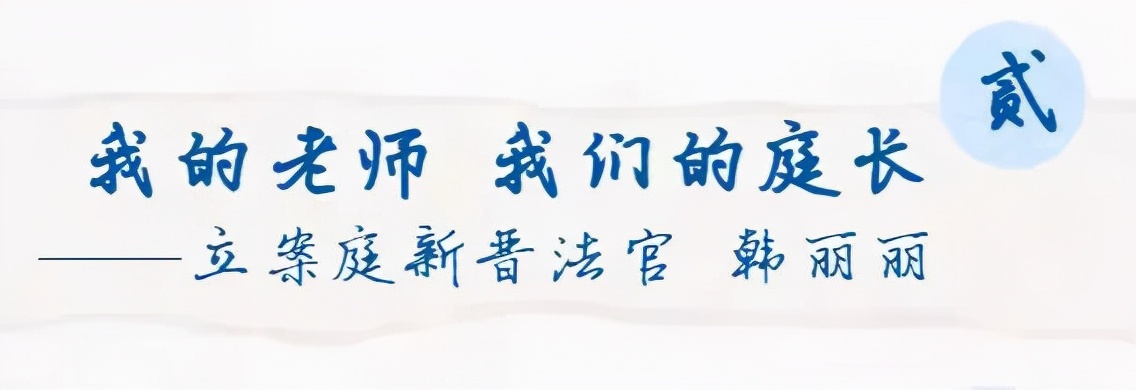 贰
我的老师 我们的庭长
——立案庭新晋法官 韩丽丽